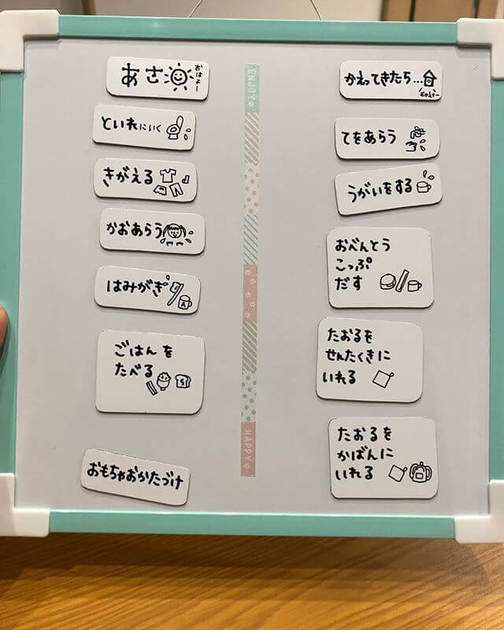 あさ
おはよー
といれにいく
きがえる
かおあらう
はみがき
A
ごはんを
たべる
おもちゃおかたづけ
ENJOY
HAPPY
かえってきたら…
てをあらう
うがいをする
おべんとう
こっぷ
だす
たおるを
せんたくきに
いれる
たおるを
かばんに
いれる